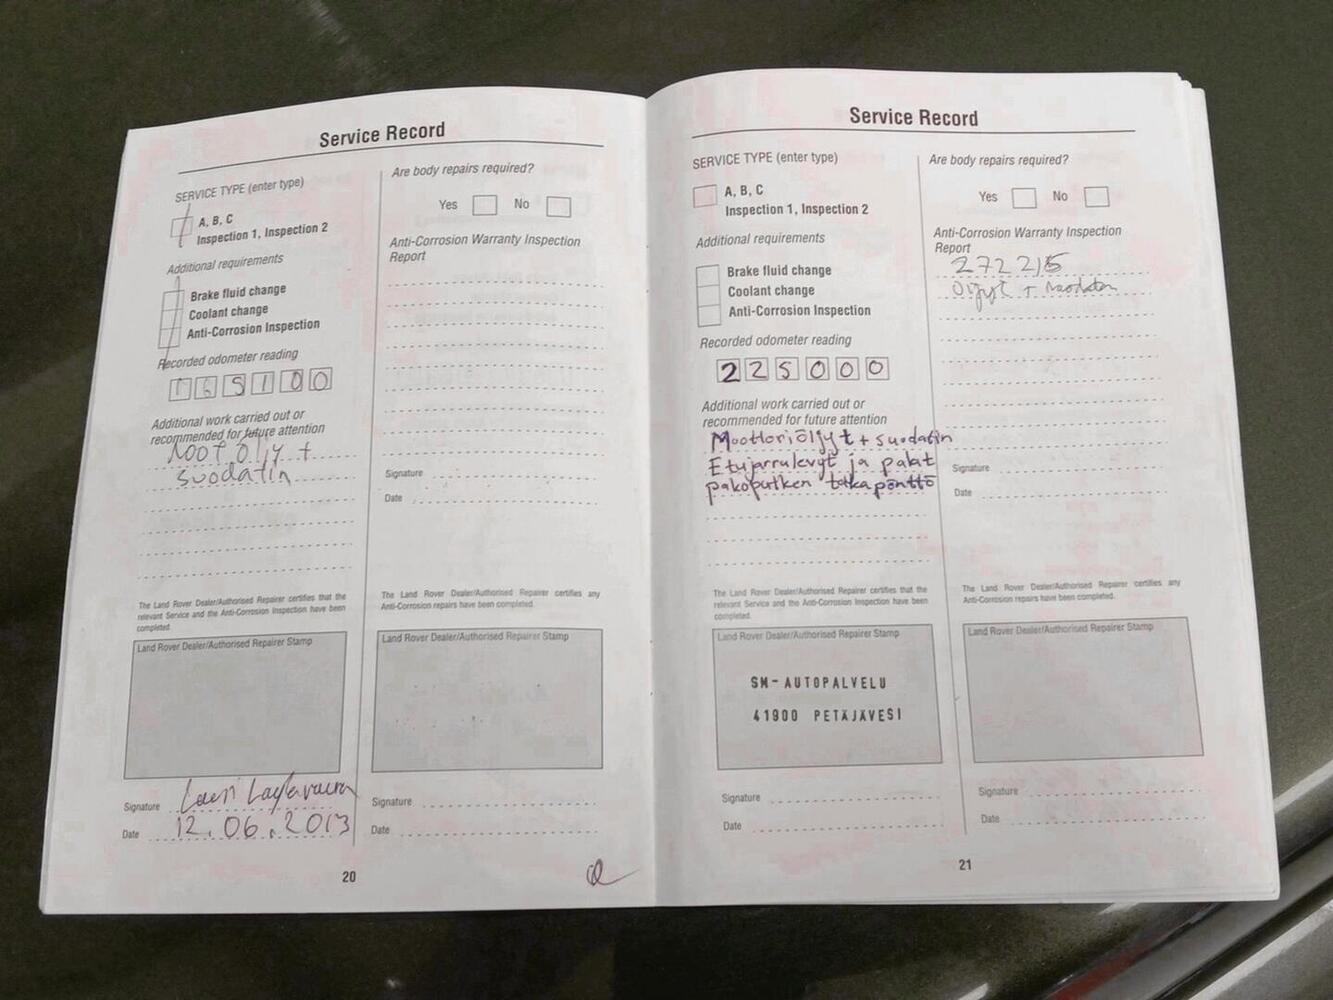 Service Record
SERVICE TYPE (enter type)
A, B, C
Inspection 1, Inspection 2
Additional requirements
Brake fluid change
Coolant change
Anti-Corrosion Inspection
Recorded odometer reading
165100
Additional work carried out or
recommended for future attention
Moot. öljy +
suodatin
The Land Rover Dealer/Authorised Repairer certifies that the
relevant Service and the Anti-Corrosion Inspection have been
completed.
Land Rover Dealer/Authorised Repairer Stamp
Signature
Date 12.06.2013
Are body repairs required?
Yes No
Anti-Corrosion Warranty Inspection
Report
Signature
Date
The Land Rover Dealer/Authorised Repairer certifies any
Anti-Corrosion repairs have been completed.
Land Rover Dealer/Authorised Repairer Stamp
Signature
Date
20
Service Record
SERVICE TYPE (enter type)
A, B, C
Inspection 1, Inspection 2
Additional requirements
Brake fluid change
Coolant change
Anti-Corrosion Inspection
Recorded odometer reading
225000
Additional work carried out or
recommended for future attention
Moottoriöljyt + suodatin
Etujarrulevyt ja palat
pakoputken takapönttö
The Land Rover Dealer/Authorised Repairer certifies that the
relevant Service and the Anti-Corrosion Inspection have been
completed.
Land Rover Dealer/Authorised Repairer Stamp
SM-AUTOPALVELU
41900 PETÄJÄVESI
Signature
Date
Are body repairs required?
Yes No
Anti-Corrosion Warranty Inspection
Report
272215
Öljyt + suodatin
Signature
Date
The Land Rover Dealer/Authorised Repairer certifies any
Anti-Corrosion repairs have been completed.
Land Rover Dealer/Authorised Repairer Stamp
Signature
Date
21